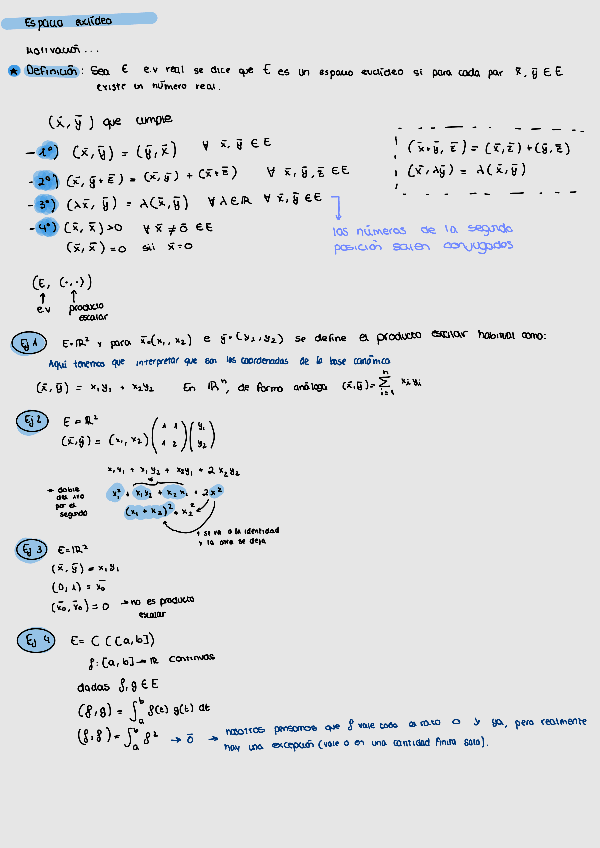 Espacio euclídeo
Motivación...
* Definición: Sea E e.v real se dice que E es un espacio euclídeo si para cada par x̄, ȳ ∈ E
existe un número real.
(x̄, ȳ) que cumple
- 1º) (x̄, ȳ) = (ȳ, x̄) ∀ x̄, ȳ ∈ E
- 2º) (x̄, ȳ+z̄) = (x̄, ȳ) + (x̄+z̄) ∀ x̄, ȳ, z̄ ∈ E
- 3º) (λx̄, ȳ) = λ(x̄, ȳ) ∀ λ∈ℝ ∀ x̄, ȳ ∈ E
- 4º) (x̄, x̄) > 0 ∀ x̄ ≠ 0̄ ∈ E
(x̄, x̄) = 0 sii x̄ = 0
(x̄+ȳ, z̄) = (x̄, z̄) + (ȳ, z̄)
(x̄, λȳ) = λ(x̄, ȳ)
los números de la segunda
posición salen conjugados
(E, (·,·))
↑ ↑
e.v producto
escalar
Ej 1 E=ℝ² y para x̄=(x₁, x₂) e ȳ=(y₁, y₂) se define el producto escalar habitual como:
Aquí tenemos que interpretar que son las coordenadas de la base canónica
(x̄, ȳ) = x₁y₁ + x₂y₂ En ℝⁿ, de forma análoga (x̄, ȳ) = ∑ⁿᵢ₌₁ xᵢyᵢ
Ej 2 E = ℝ²
(x̄, ȳ) = (x₁, x₂) (1 1 / 1 2) (y₁ / y₂)
x₁y₁ + x₁y₂ + x₂y₁ + 2x₂y₂
→ doble
del 1ero
por el
segundo
x₁² + x₁x₂ + x₂x₁ + 2x²
(x₁ + x₂)² + x₂²
si va a la identidad
y la otra se deja
Ej 3 E=ℝ²
(x̄, ȳ) = x₁y₁
(0, 1) = x̄₀
(x̄₀, x̄₀) = 0 → no es producto
escalar
Ej 4 E = C([a,b])
f: [a,b] → ℝ continuas
dadas f, g ∈ E
(f, g) = ∫ₐᵇ f(t) g(t) dt
(f, f) = ∫ₐᵇ f² → 0̄ → nosotros pensamos que f vale todo el rato 0 y ya, pero realmente
hay una excepción (vale 0 en una cantidad finita sola).